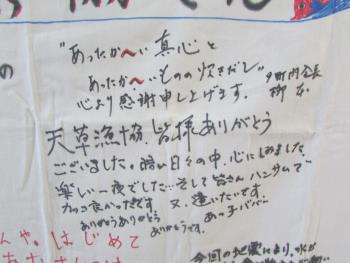 "あったか〜い 真心と
あったか〜いものの炊きだし"
心より感謝申し上げます。
夕町内会長
柳本
天草漁協 皆様ありがとう
ございました。暗い日々の中、心にしみました。
楽しい一夜でした…そして皆さんハンサムで
カッコ良かったです 又、逢いたいです。
ありがとうありがとう あっ子ババ
ありがとうです。
んや。はじめて
今回の地震により、水が
の